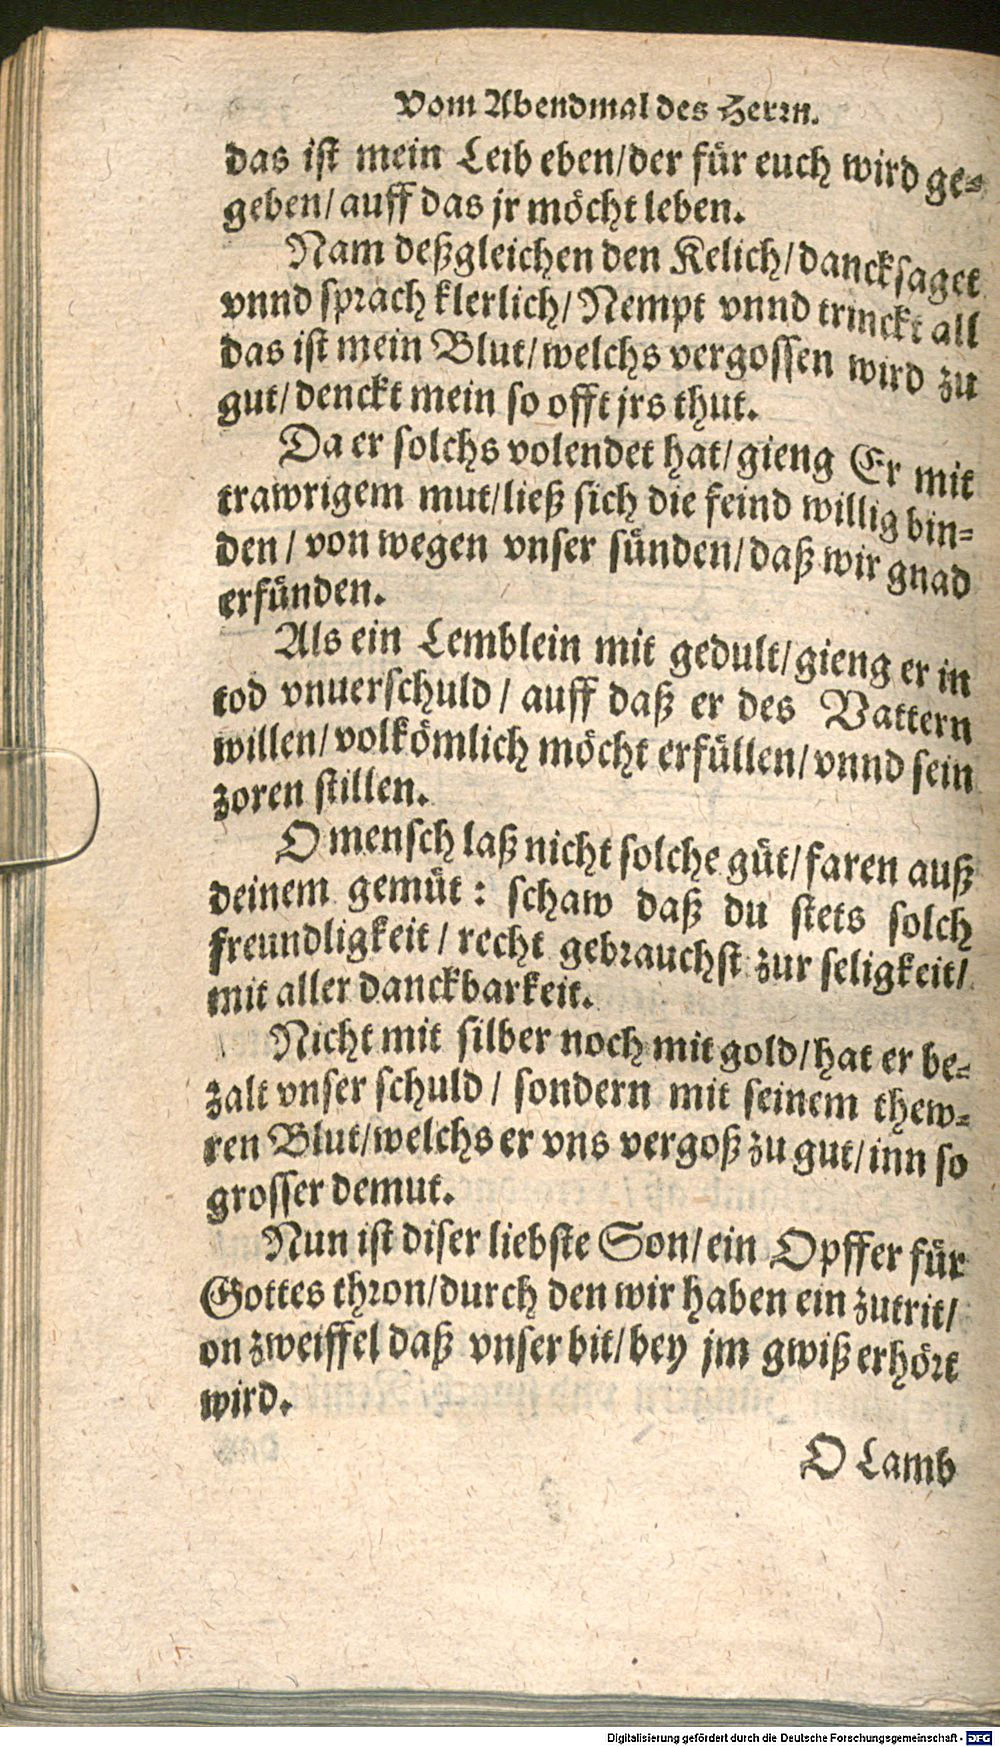 Vom Abendmal des Herrn.
das ist mein Leib eben/der für euch wird ge=
geben/auff das jr möcht leben.
Nam deßgleichen den Kelich/dancksaget
vnnd sprach klerlich/Nempt vnnd trinckt all
das ist mein Blut/welchs vergossen wird zu
gut/denckt mein so offt jrs thut.
Da er solchs volendet hat/gieng Er mit
trawrigem mut/ließ sich die feind willig bin=
den/von wegen vnser sünden/daß wir gnad
erfünden.
Als ein Lemblein mit gedult/gieng er in
tod vnuerschuld/auff daß er des Vattern
willen/volkömlich möcht erfüllen/vnnd sein
zoren stillen.
O mensch laß nicht solche güt/faren auß
deinem gemüt: schaw daß du stets solch
freundligkeit/recht gebrauchst zur seligkeit/
mit aller danckbarkeit.
Nicht mit silber noch mit gold/hat er be=
zalt vnser schuld/sondern mit seinem thew=
ren Blut/welchs er vns vergoß zu gut/inn so
grosser demut.
Nun ist diser liebste Son/ein Opffer für
Gottes thron/durch den wir haben ein zutrit/
on zweiffel daß vnser bit/bey jm gwiß erhört
wird.
O Lamb
Digitalisierung gefördert durch die Deutsche Forschungsgemeinschaft - DFG